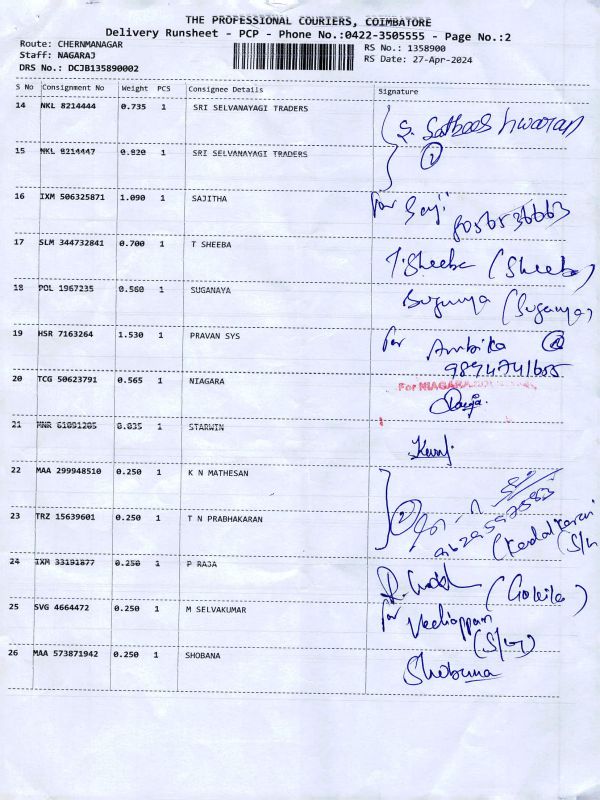 THE PROFESSIONAL COURIERS, COIMBATORE
Delivery Runsheet - PCP - Phone No.:0422-3505555 - Page No.:2
Route: CHERNMANAGAR
Staff: NAGARAJ
DRS No.: DCJB135890002
RS No.: 1358900
RS Date: 27-Apr-2024
S No Consignment No Weight PCS Consignee Details Signature
14 NKL 8214444 0.735 1 SRI SELVANAYAGI TRADERS
15 NKL 8214447 0.820 1 SRI SELVANAYAGI TRADERS
2
16 IXM 506325871 1.090 1 SAJITHA
for Saji
8056536663
17 SLM 344732841 0.700 1 T SHEEBA T.Sheeba (Sheeba)
18 POL 1967235 0.560 1 SUGANAYA Suganya (Suganya)
19 HSR 7163264 1.530 1 PRAVAN SYS for Ambika
9894741655
20 TCG 50623791 0.565 1 NIAGARA For NIAGARA
21 MNR 61091205 0.835 1 STARWIN
22 MAA 299948510 0.250 1 K N MATHESAN
23 TRZ 15639601 0.250 1 T N PRABHAKARAN 2
24 IXM 33191877 0.250 1 P RAJA (Gokila)
25 SVG 4664472 0.250 1 M SELVAKUMAR for
26 MAA 573871942 0.250 1 SHOBANA Shobana